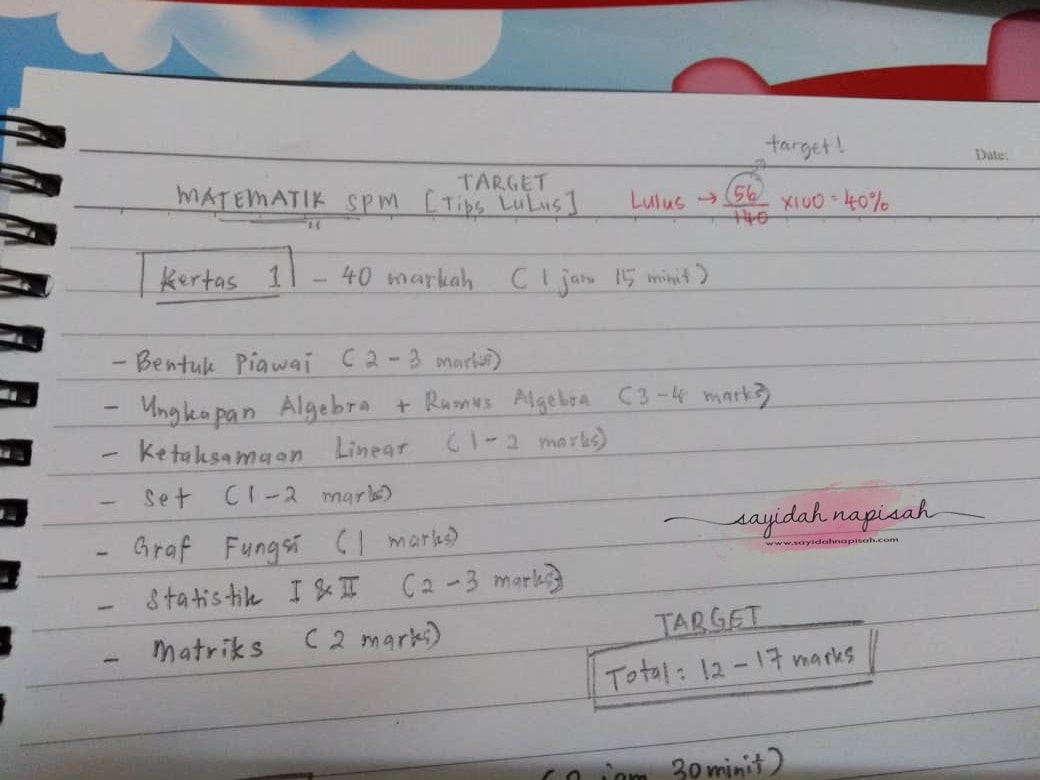 target!
Date:
MATEMATIK SPM [Tips LuLus] TARGET
Lulus → 56/140 x100 = 40%
Kertas 1 - 40 markah (1 jam 15 minit)
- Bentuk Piawai (2-3 marks)
- Ungkapan Algebra + Rumus Algebra (3-4 marks)
- Ketaksamaan Linear (1-2 marks)
- Set (1-2 marks)
- Graf Fungsi (1 marks)
- Statistik I & II (2-3 marks)
- Matriks (2 marks)
sayidah napisah
www.sayidahnapisah.com
TARGET
Total: 12-17 marks
(2 jam 30 minit)